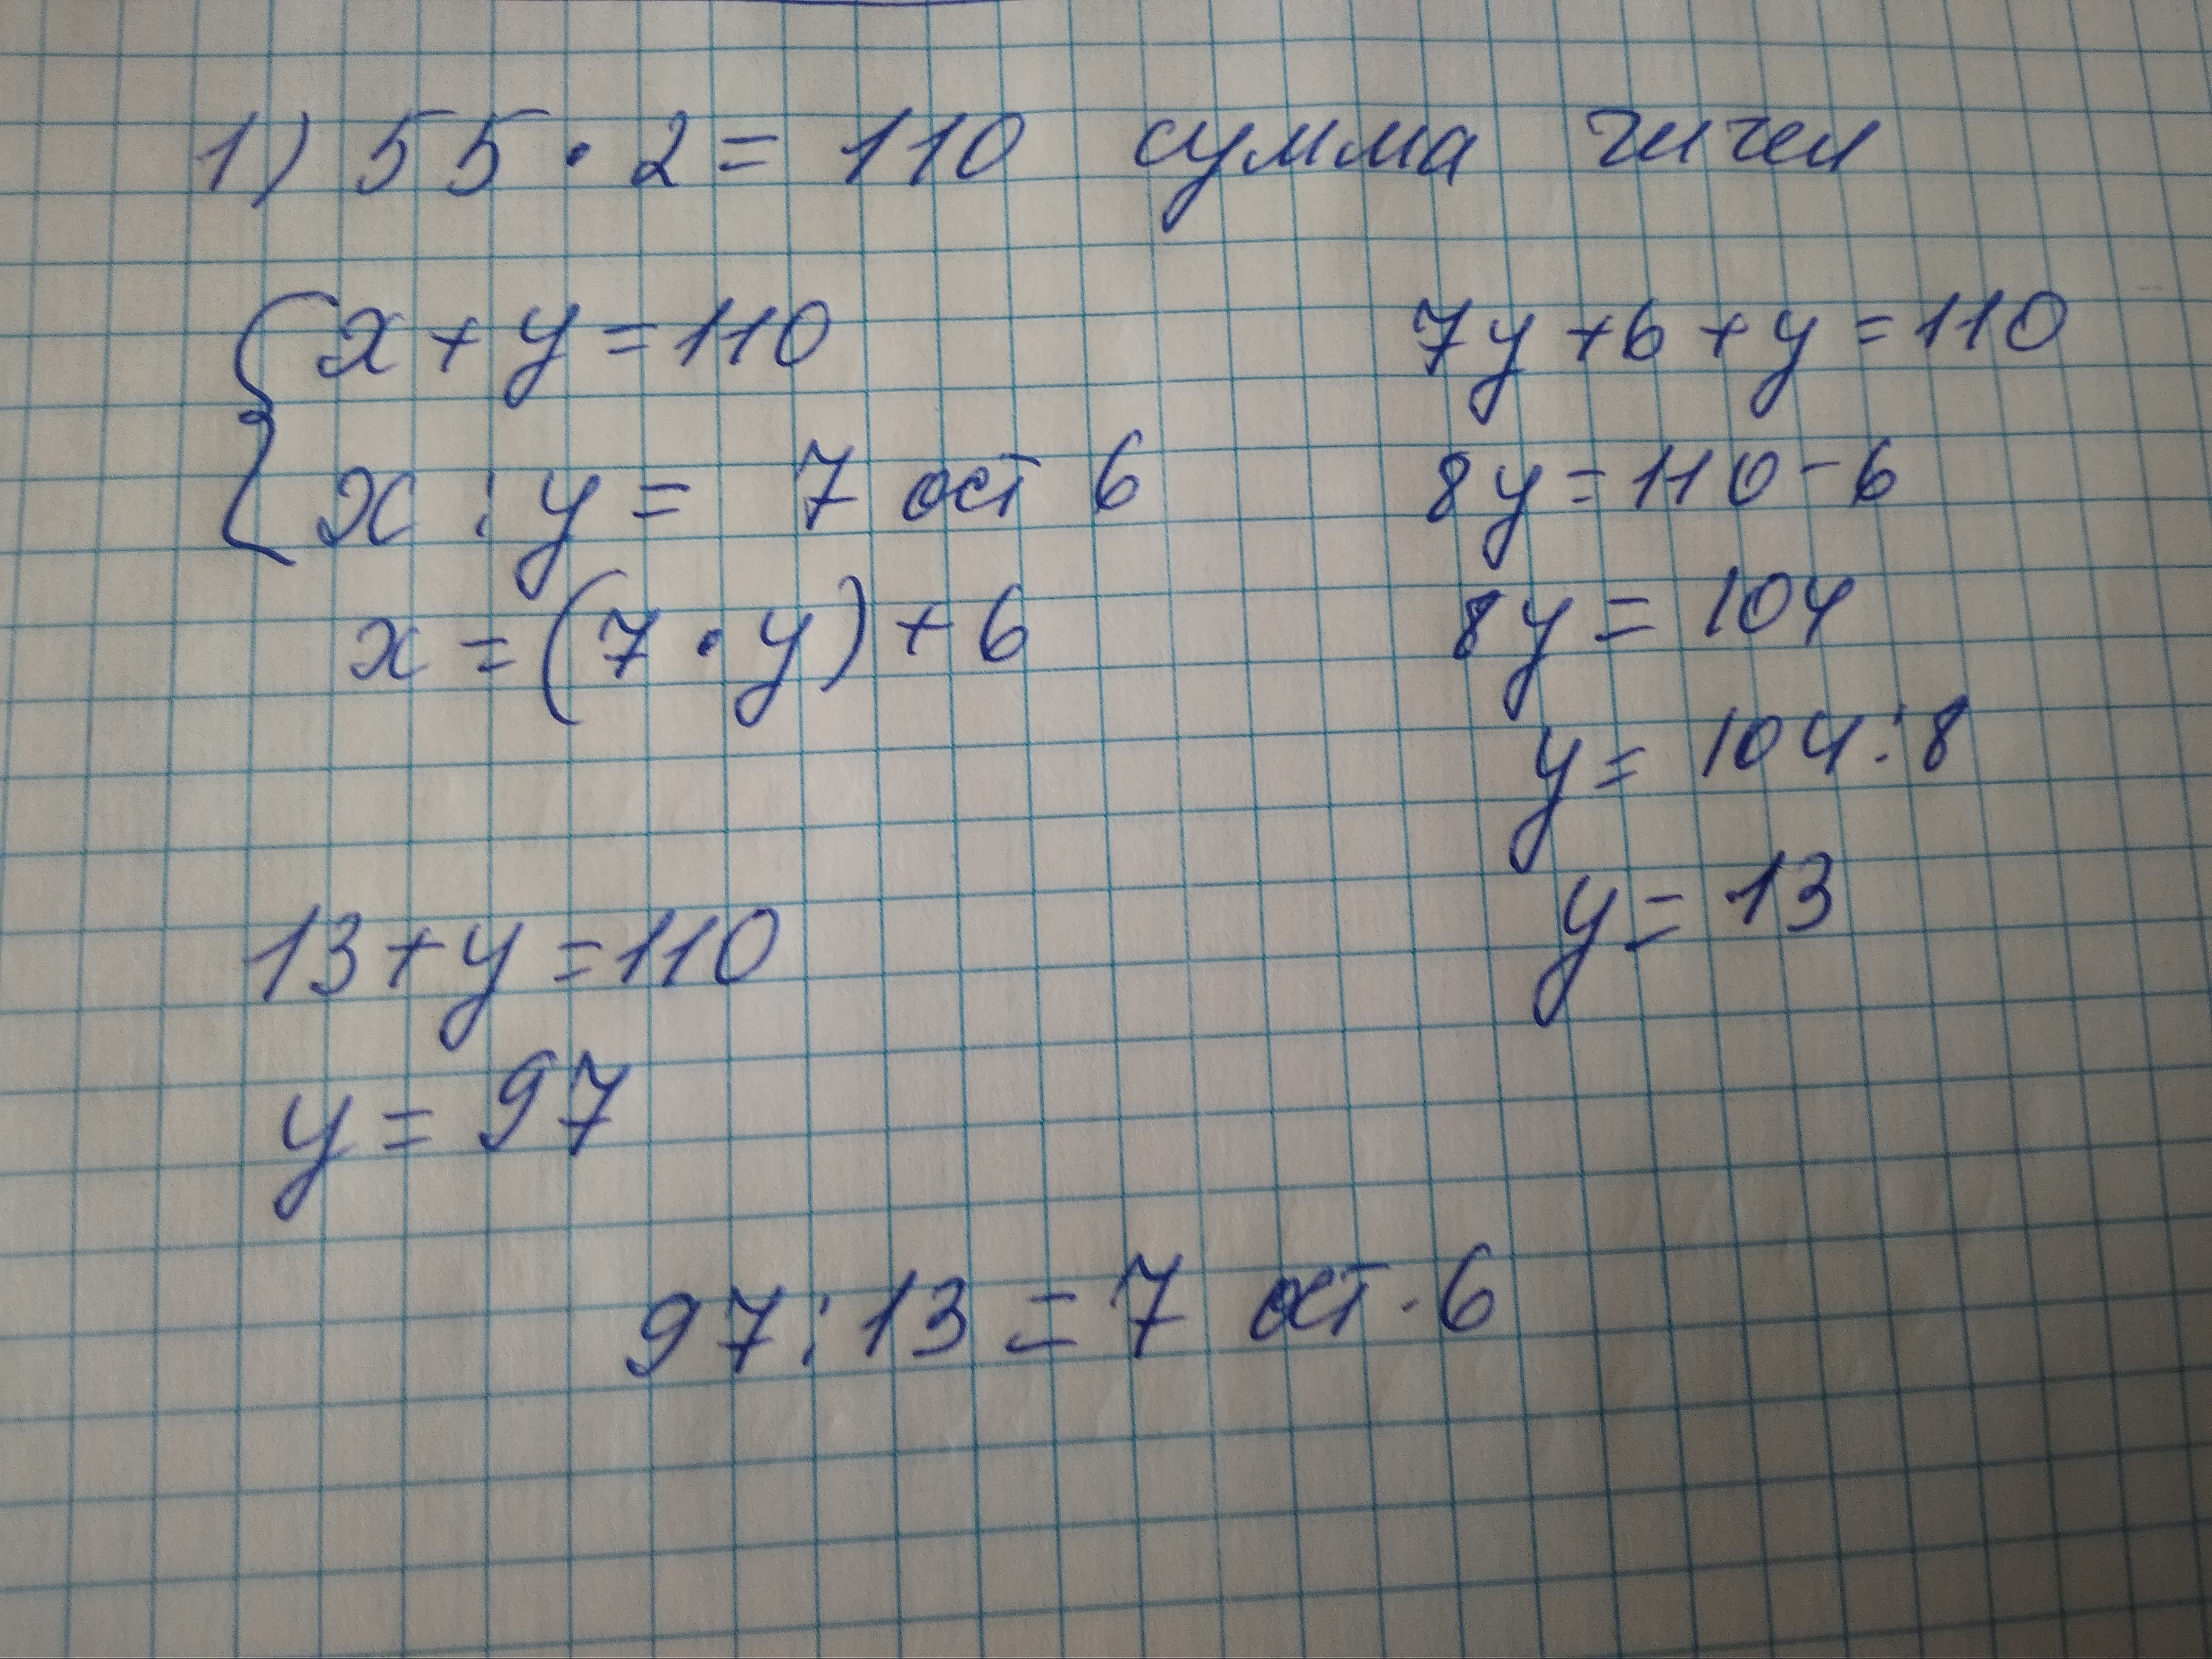 1) 55 · 2 = 110 сумма чисел
x + y = 110
x : y = 7 ост 6
x = (7 · y) + 6
7y + 6 + y = 110
8y = 110 - 6
8y = 104
y = 104 : 8
y = 13
13 + y = 110
y = 97
97 : 13 = 7 ост. 6